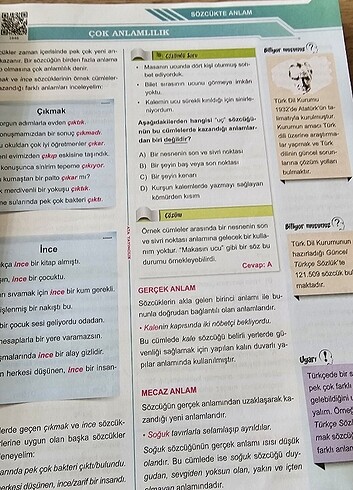 SÖZCÜKTE ANLAM
ÇOK ANLAMLILIK
cükler zaman içerisinde pek çok yeni an-
kazanır. Bir sözcüğün birden fazla anlama
olmasına çok anlamlılık denir.
mak ve ince sözcüklerinin örnek cümleler-
azandığı farklı anlamları inceleyelim:
Çıkmak
orgun adımlarla evden çıktık.
onuşmamızdan bir sonuç çıkmadı.
u okuldan çok iyi öğretmenler çıkar.
eni evimizden çıkıp eskisine taşındık.
konuşunca sinirim tepeme çıkıyor.
kumaştan bir palto çıkar mı?
merdivenli bir yokuşu çıktık.
ne sularında pek çok bakteri çıktı.
İnce
kça ince bir kitap almıştı.
ın, ince bir çocuktu.
arı sıvamak için ince bir kum gerekli.
işlenmiş bir nakıştı bu.
bir çocuk sesi geliyordu odadan.
hesaplarla bir yere varamazsın.
şmalarında ince bir alay gizlidir.
n herkesi düşünen, ince bir insan-
lerde geçen çıkmak ve ince sözcük-
erine uygun olan başka sözcükler
eneyelim:
arında pek çok bakteri çıktı/bulundu.
kesi düşünen, ince/zarif bir insandı.
Çözümlü Soru
• Masanın ucunda dört kişi oturmuş soh-
bet ediyorduk.
• Bilet sırasının ucunu görmeye imkân
yoktu.
• Kalemin ucu sürekli kırıldığı için sinirle-
niyordum.
Aşağıdakilerden hangisi "uç" sözcüğü-
nün bu cümlelerde kazandığı anlamlar-
dan biri değildir?
A) Bir nesnenin son ve sivri noktası
B) Bir şeyin baş veya son noktası
C) Bir şeyin kenarı
D) Kurşun kalemlerde yazmayı sağlayan
kömürden kısım
Çözüm
Örnek cümleler arasında bir nesnenin son
ve sivri noktası anlamına gelecek bir kulla-
nım yoktur. "Makasın ucu" gibi bir söz bu
durumu örnekleyebilirdi.
Cevap: A
GERÇEK ANLAM
Sözcüklerin akla gelen birinci anlamı ile bu-
nunla doğrudan bağlantılı olan anlamlarıdır.
• Kalenin kapısında iki nöbetçi bekliyordu.
Bu cümlede kale sözcüğü belirli yerlerde gü-
venliği sağlamak için yapılan kalın duvarlı ya-
pılar anlamında kullanılmıştır.
MECAZ ANLAM
Sözcüğün gerçek anlamından uzaklaşarak ka-
zandığı yeni anlamlarıdır.
• Soğuk tavırlarla selamlaşıp ayrıldılar.
Soğuk sözcüğünün gerçek anlamı ısısı düşük
olandır. Bu cümlede ise soğuk sözcüğü duy-
gudan, sevgiden yoksun olan, yakın ve içten
olmayan anlamındadır.
Biliyor musunuz?
Türk Dil Kurumu
1932'de Atatürk'ün ta-
limatıyla kurulmuştur.
Kurumun amacı Türk
dili üzerine araştırma-
lar yapmak ve Türk
dilinin güncel sorun-
larına çözüm yolları
bulmaktır.
Biliyor musunuz?
Türk Dil Kurumunun
hazırladığı Güncel
Türkçe Sözlük'te
121.509 sözcük bul
maktadır.
Uyarı
Türkçede bir s
pek çok farklı
gelebildiğini u
yalım. Örneğ
Türkçe Sözlü
mak sözcüğ
farklı anlam